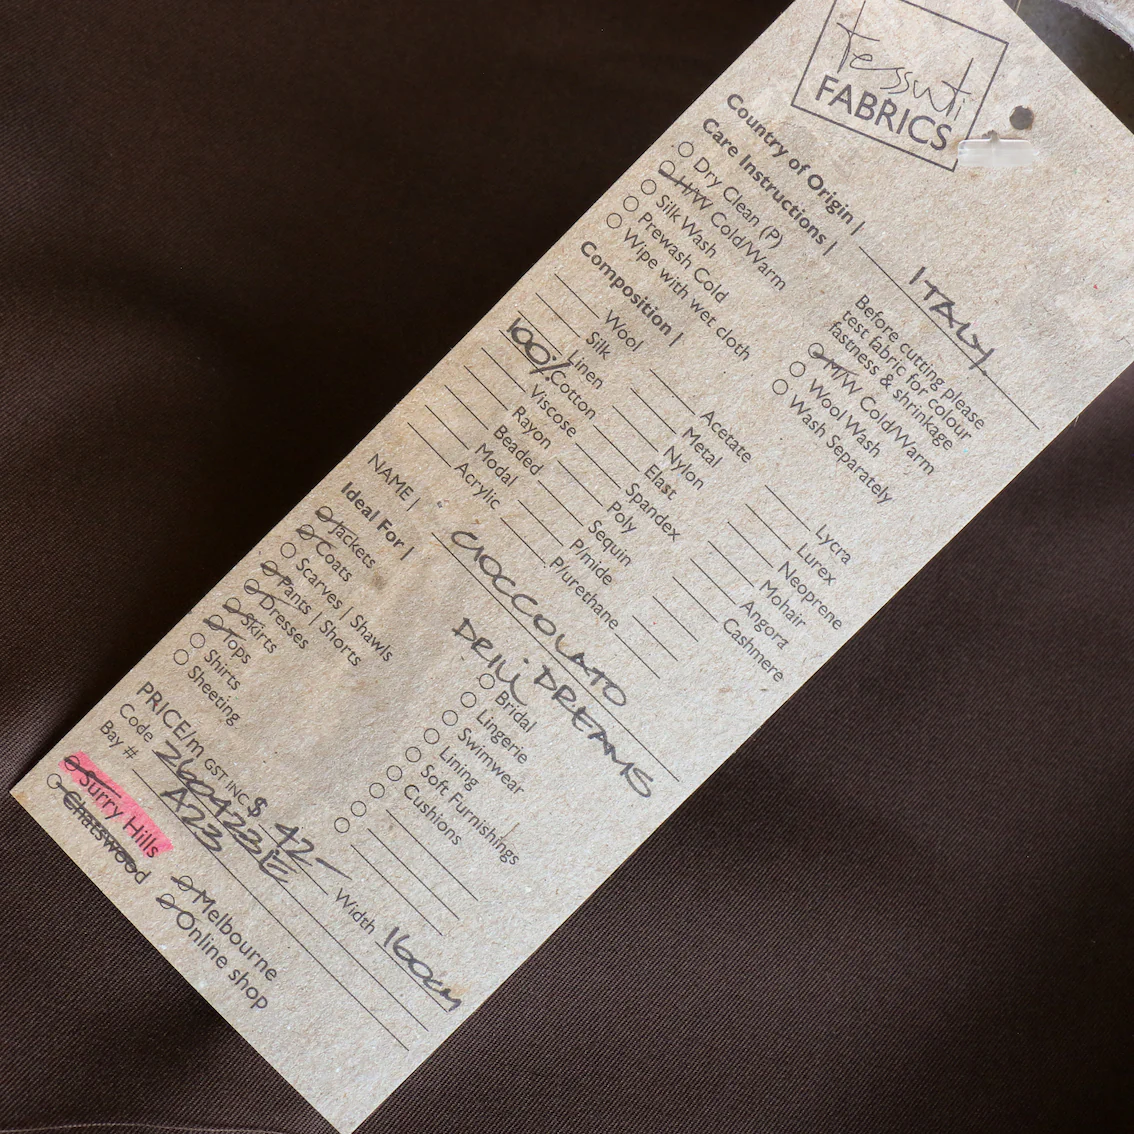 tessuti
FABRICS
Country of Origin | ITALY
Care Instructions |
Dry Clean (P)
H/W Cold/Warm
Silk Wash
Prewash Cold
Wipe with wet cloth
Before cutting please
test fabric for colour
fastness & shrinkage
M/W Cold/Warm
Wool Wash
Wash Separately
Composition |
Wool
Silk
Linen
100% Cotton
Viscose
Rayon
Beaded
Modal
Acrylic
Acetate
Metal
Nylon
Elast
Spandex
Poly
Sequin
P/mide
P/urethane
Lycra
Lurex
Neoprene
Mohair
Angora
Cashmere
NAME | CIOCCOLATO
DRILL DREAMS
Ideal For |
Jackets
Coats
Scarves | Shawls
Pants | Shorts
Dresses
Skirts
Tops
Shirts
Sheeting
Bridal
Lingerie
Swimwear
Lining
Soft Furnishings
Cushions
PRICE/m GST INC $ 42- Width 160cm
Code 260423E
Bay # A23
Surry Hills
Chatswood
Melbourne
Online shop